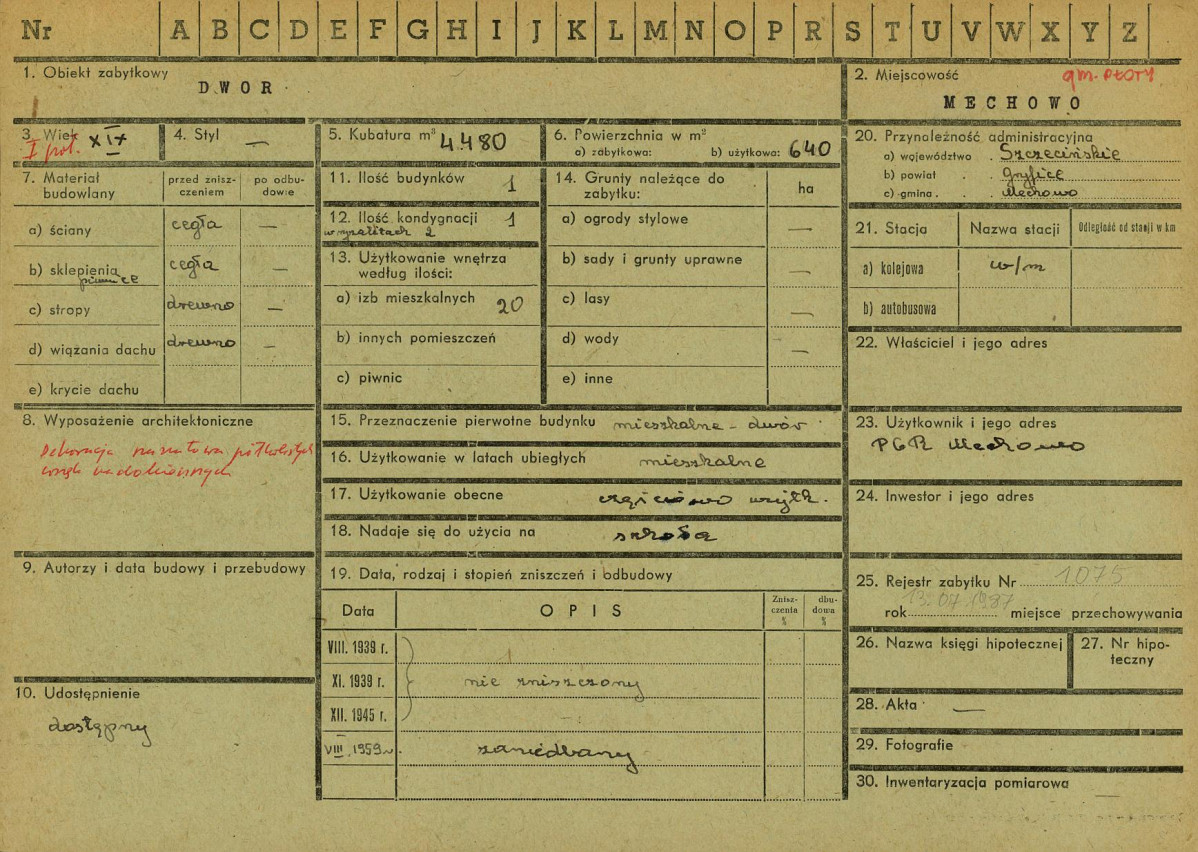 Nr A B C D E F G H I J K L M N O P R S T U V W X Y Z
1. Obiekt zabytkowy
DWOR
2. Miejscowość
gm. PŁOTY
MECHOWO
3. Wiek
I poł. XIX
4. Styl
—
5. Kubatura m³ 4.480
6. Powierzchnia w m²
a) zabytkowa: b) użytkowa: 640
7. Materiał budowlany
przed zniszczeniem
po odbudowie
a) ściany cegła —
b) sklepienia cegła —
piwnice
c) stropy drewno —
d) wiązania dachu drewno —
e) krycie dachu
8. Wyposażenie architektoniczne
Dekoracja półkolistych
wnęk nadokiennych
9. Autorzy i data budowy i przebudowy
10. Udostępnienie
dostępny
11. Ilość budynków 1
12. Ilość kondygnacji 1
w ryzalitach 2
13. Użytkowanie wnętrza
według ilości:
a) izb mieszkalnych 20
b) innych pomieszczeń
c) piwnic
14. Grunty należące do
zabytku:
ha
a) ogrody stylowe —
b) sady i grunty uprawne —
c) lasy —
d) wody —
e) inne
15. Przeznaczenie pierwotne budynku mieszkalne - dwór
16. Użytkowanie w latach ubiegłych mieszkalne
17. Użytkowanie obecne częściowo użytk.
18. Nadaje się do użycia na szkoła
19. Data, rodzaj i stopień zniszczeń i odbudowy
Data
OPIS
Zniszczenia %
dbudowa %
VIII. 1939 r.
XI. 1939 r. nie zniszczony
XII. 1945 r.
VIII 1959 r. zaniedbany
20. Przynależność administracyjna
a) województwo Szczecińskie
b) powiat Gryfice
c) gmina Mechowo
21. Stacja
Nazwa stacji
Odległość od stacji w km
a) kolejowa w/m
b) autobusowa
22. Właściciel i jego adres
23. Użytkownik i jego adres
PGR Mechowo
24. Inwestor i jego adres
25. Rejestr zabytku Nr 1075
rok 13.07.1987 miejsce przechowywania
26. Nazwa księgi hipotecznej
27. Nr hipoteczny
28. Akta —
29. Fotografie
30. Inwentaryzacja pomiarowa —